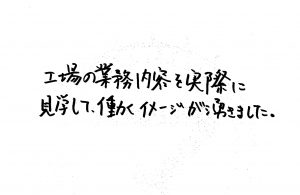 工場の業務内容を実際に
見学して、働くイメージが湧きました。